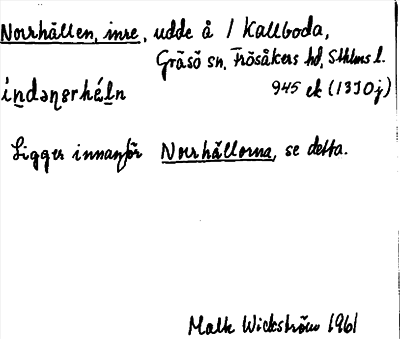 Norrhällen, inre, udde å / Kallboda,
Gräsö sn, Frösåkers hd, Sthlms l.
945 ek (13J0j)
Ligger innanför Norrhällorna, se detta.
Malte Wickström 1961